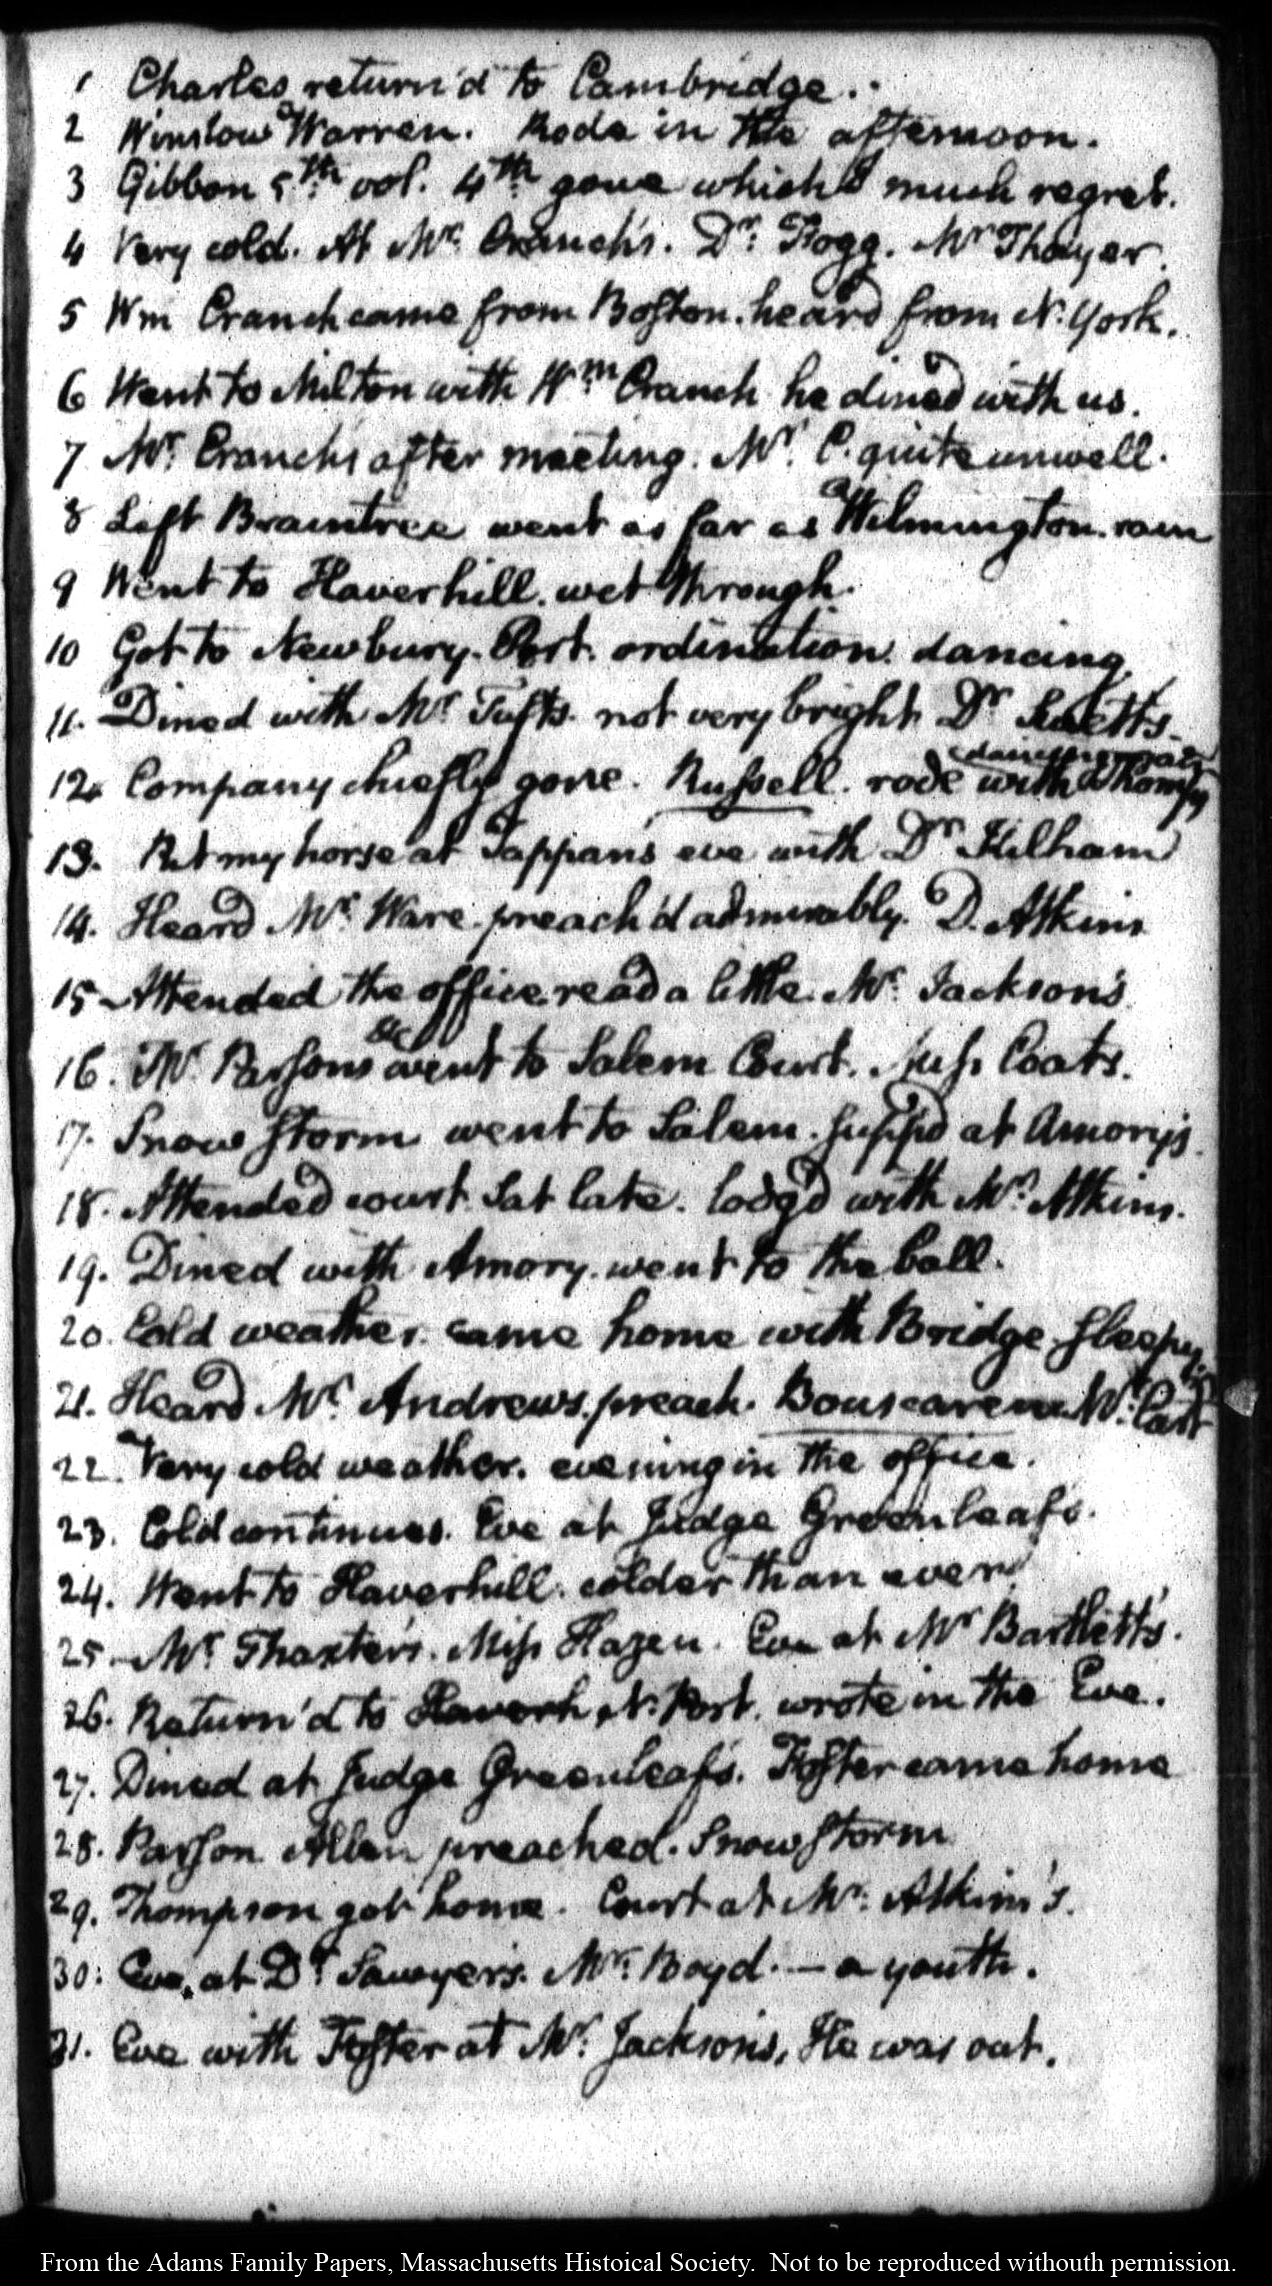 1 Charles return'd to Cambridge.
2 Winslow Warren. Rode in the afternoon.
3 Gibbon 5th vol. 4th gone which I much regret.
4 Very cold. At Mr. Cranch's. Dr. Fogg. Mr Thayer.
5 Wm Cranch came from Boston. heard from N. York.
6 Went to Milton with Wm Cranch he dined with us.
7 Mr. Cranch's after meeting. Mr. C. quite unwell.
8 Left Braintree went as far as Wilmington. rain
9 Went to Haverhill. wet through.
10 Got to Newbury-Port. ordination. dancing
11. Dined with Mr Tufts. not very bright Dr Swett's.
12. Company chiefly gone. Russell. rode with Thomp
13. Put my horse at Tappan's eve with Dr Kilham
14. Heard Mr. Ware. preach'd admirably. D. Atkins
15 Attended the office. read a little. Mr. Jackson's
16. Mr Parsons &c went to Salem Court. Miss Coats.
17. Snow storm went to Salem. supp'd at Amory's.
18. Attended court. Sat late. lodg'd with Mr. Atkins.
19. Dined with Amory. went to the ball.
20. Cold weather. came home with Bridge sleepy.
21. Heard Mr Andrews. preach. Bouscaren Mr. Carr
22. Very cold weather. evening in the office.
23. Cold continues. Eve at Judge Greenleaf's.
24. Went to Haverhill. colder than ever
25 Mr. Thaxter's. Miss Hazen. Eve at Mr Bartlett's.
26. Return'd to Haverh N. Port. wrote in the Eve.
27. Dined at Judge Greenleaf's. Foster came home
28. Parson Allen preached. Snow storm
29. Thompson got home. Court at Mr. Atkins's.
30. Eve. at Dr. Sawyer's. Mr. Boyd. — a youth.
31. Eve with Foster at Mr. Jackson's, He was out.
From the Adams Family Papers, Massachusetts Histoical Society. Not to be reproduced withouth permission.